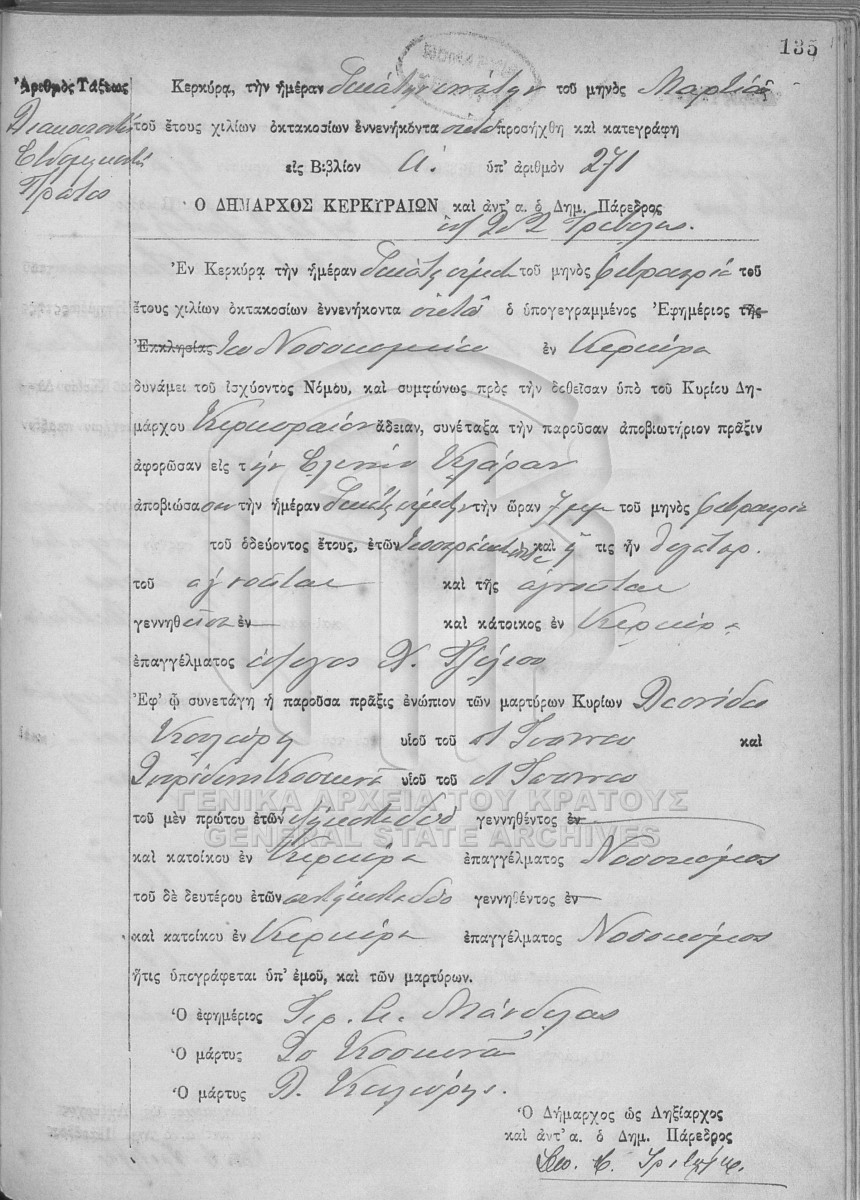 135
Ἀριθμὸς Τάξεως
Διακοσιοστὴ
Ἑβδομηκοστὴ
Πρώτη
Κερκύρᾳ, τὴν ἡμέραν Δεκάτην ἐνάτην τοῦ μηνὸς Μαρτίου
τοῦ ἔτους χιλίων ὀκτακοσίων ἐννενήκοντα ὀκτὼ προσήχθη καὶ κατεγράφη
εἰς Βιβλίον Α. ὑπ' ἀριθμὸν 271
Ο ΔΗΜΑΡΧΟΣ ΚΕΡΚΥΡΑΙΩΝ καὶ ἀντ' α. ὁ Δημ. Πάρεδρος
Ἐν Κερκύρᾳ τὴν ἡμέραν τοῦ μηνὸς Φεβρουαρίου τοῦ
ἔτους χιλίων ὀκτακοσίων ἐννενήκοντα ὀκτὼ ὁ ὑπογεγραμμένος Ἐφημέριος τῆς
Ἐκκλησίας τοῦ Νοσοκομείου ἐν Κερκύρᾳ
δυνάμει τοῦ ἰσχύοντος Νόμου, καὶ συμφώνως πρὸς τὴν δοθεῖσαν ὑπὸ τοῦ Κυρίου Δη-
μάρχου Κερκυραίων ἄδειαν, συνέταξα τὴν παροῦσαν ἀποβιωτήριον πρᾶξιν
ἀφορῶσαν εἰς τὴν Ἑλένην Κλάραν
ἀποβιώσασαν τὴν ἡμέραν τὴν ὥραν 7 μμ τοῦ μηνὸς Φεβρουαρίου
τοῦ ὁδεύοντος ἔτους, ἐτῶν καὶ ἥτις ἦν θυγάτηρ
τοῦ ἀγνώστου καὶ τῆς ἀγνώστου
γεννηθεῖσα ἐν καὶ κάτοικος ἐν Κερκύρᾳ
ἐπαγγέλματος
Ἐφ' ᾧ συνετάγη ἡ παροῦσα πρᾶξις ἐνώπιον τῶν μαρτύρων Κυρίων Λεονίδου
Καλούρη υἱοῦ τοῦ Ἰωάννου καὶ
Σπυρίδωνος Κοσκινᾶ υἱοῦ τοῦ Ἰωάννου
ΓΕΝΙΚΑ ΑΡΧΕΙΑ ΤΟΥ ΚΡΑΤΟΥΣ
τοῦ μὲν πρώτου ἐτῶν γεννηθέντος ἐν
GENERAL STATE ARCHIVES
καὶ κατοίκου ἐν Κερκύρᾳ ἐπαγγέλματος Νοσοκόμος
τοῦ δὲ δευτέρου ἐτῶν γεννηθέντος ἐν
καὶ κατοίκου ἐν Κερκύρᾳ ἐπαγγέλματος Νοσοκόμος
ἥτις ὑπογράφεται ὑπ' ἐμοῦ, καὶ τῶν μαρτύρων.
Ὁ ἐφημέριος Ἱερ. Α. Μάνδυλας
Ὁ μάρτυς Σπ Κοσκινᾶ
Ὁ μάρτυς Λ. Καλούρης.
Ὁ Δήμαρχος ὡς Ληξίαρχος
καὶ ἀντ' α. ὁ Δημ. Πάρεδρος